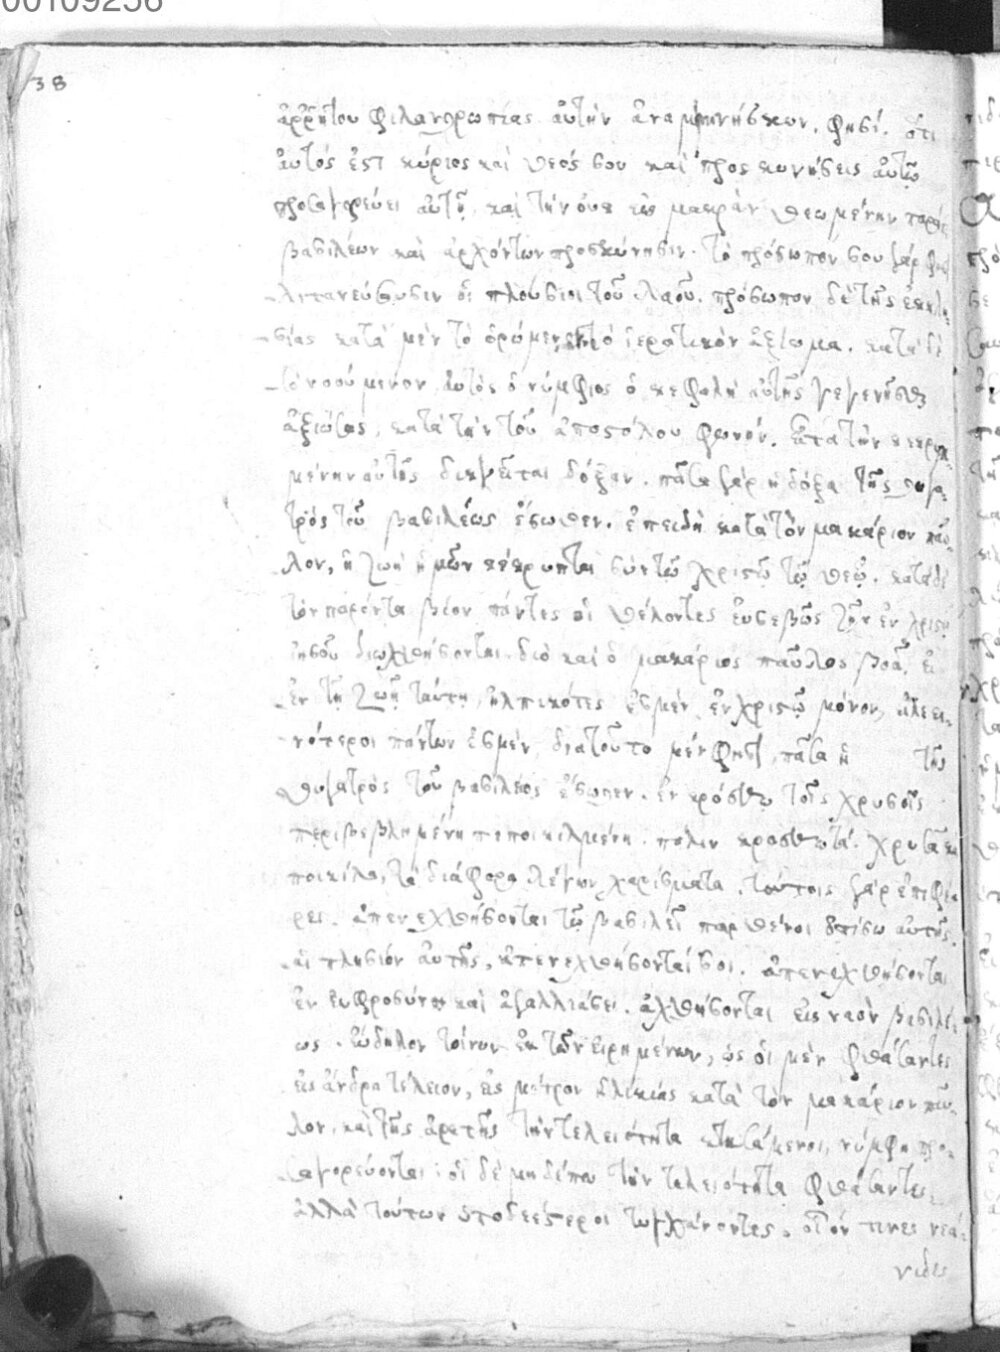 00109256
38
ἀρρήτου φιλανθρωπίας αὐτὴν ἀναμιμνήσκων. φησί. ὅτι
αὐτός ἐστι κύριος καὶ θεός σου καὶ προσκυνήσεις αὐτῷ
προσαγορεύει καὶ τὴν μακρὰν
βασιλέων καὶ ἀρχόντων προσκύνησιν. τὸ πρόσωπόν σου γάρ φησι
λιτανεύσουσιν οἱ πλούσιοι τοῦ λαοῦ. πρόσωπον δὲ τῆς ἐκκλη-
σίας κατὰ μὲν τὸ ὁρώμενον τὸ ἱερατικὸν ἀξίωμα. κατὰ δὲ
τὸ νοούμενον αὐτὸς ὁ νύμφιος ὁ κεφαλὴ αὐτῆς γεγενῆσθαι
ἀξιώσας, κατὰ τὴν τοῦ ἀποστόλου φωνήν. εἶτα τὴν κεκρυμ-
μένην αὐτῆς διηγεῖται δόξαν. πᾶσα γάρ ἡ δόξα τῆς θυγα-
τρὸς τοῦ βασιλέως ἔσωθεν. ἐπειδὴ κατὰ τὸν μακάριον παῦ-
λον, ἡ ζωὴ ἡμῶν κέκρυπται σὺν τῷ χριστῷ τῷ θεῷ. κατὰ δὲ
τὸν παρόντα βίον πάντες οἱ θέλοντες εὐσεβῶς ζῆν ἐν χριστῷ
ἰησοῦ διωχθήσονται. διὸ καὶ ὁ μακάριος παῦλος βοᾷ, εἰ
ἐν τῇ ζωῇ ταύτῃ ἠλπικότες ἐσμὲν ἐν χριστῷ μόνον, ἐλεει-
νότεροι πάντων ἐσμὲν, διατοῦτο μέν φησι, πᾶσα ἡ τῆς
θυγατρὸς τοῦ βασιλέως ἔσωθεν. ἐν κροσσωτοῖς χρυσοῖς
περιβεβλημένη πεποικιλμένη. πάλιν κροσσωτὰ χρυσᾶ καὶ
ποικίλα, τὰ διάφορα λέγων χαρίσματα. τούτοις γάρ ἐπιφέ
ρει. ἀπενεχθήσονται τῷ βασιλεῖ παρθένοι ὀπίσω αὐτῆς.
αἱ πλησίον αὐτῆς, ἀπενεχθήσονταί σοι. ἀπενεχθήσονται
ἐν εὐφροσύνῃ καὶ ἀγαλλιάσει. ἀχθήσονται εἰς ναὸν βασιλέ-
ως. εὔδηλον τοίνυν ἐκ τῶν εἰρημένων, ὡς οἱ μὲν φθάσαντες
εἰς ἄνδρα τέλειον, εἰς μέτρον ἡλικίας κατὰ τὸν μακάριον παῦ-
λον, καὶ τῆς ἀρετῆς τὴν τελειότητα κτησάμενοι, νύμφη προ-
σαγορεύονται: οἱ δὲ μηδέπω τὴν τελειότητα φθάσαντες,
ἀλλὰ τούτων ὑποδεέστεροι τυγχάνοντες, οἷόν τινες νεά-
νιδες